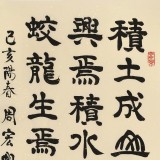 積土成山
興焉積水
蛟龍生焉
己亥陽春周宏